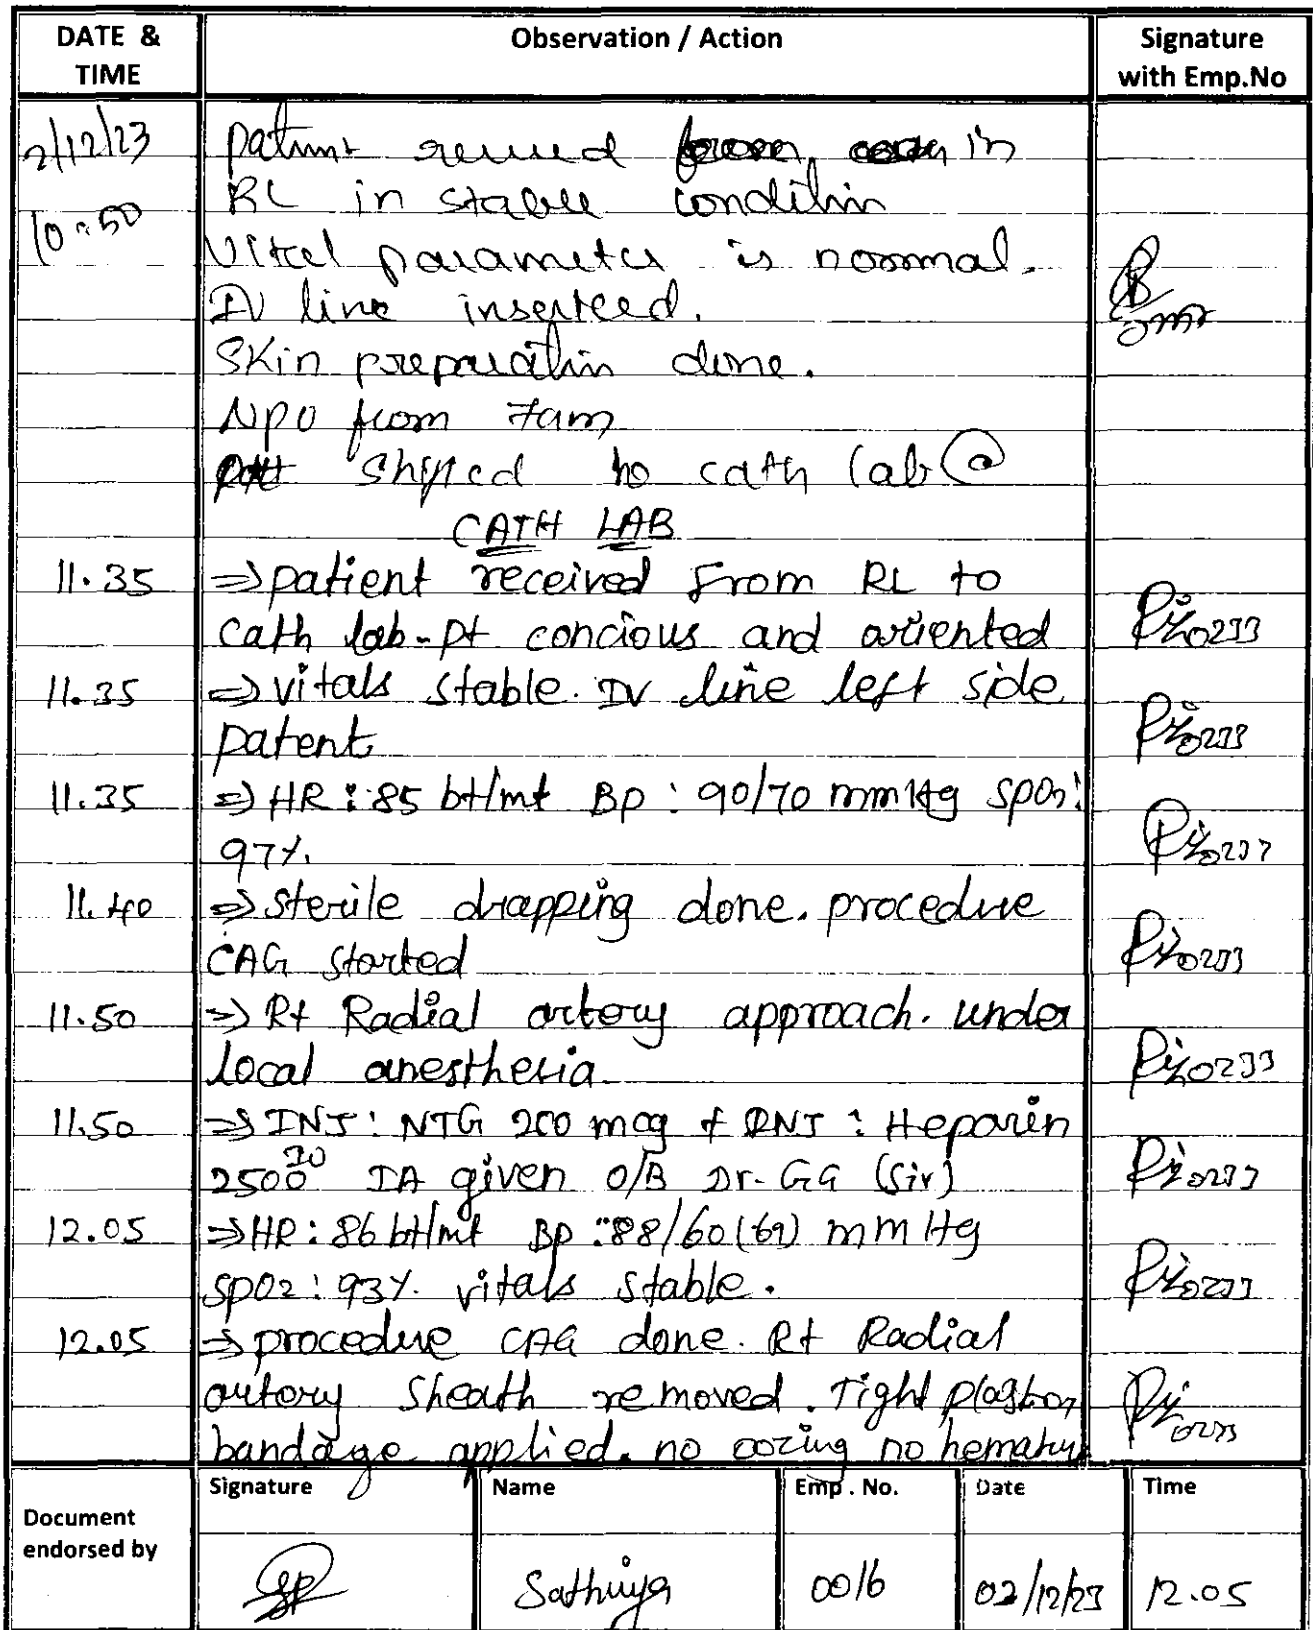 DATE & TIME Observation / Action Signature with Emp.No
2/12/23 patient received in
10:50 RL in stable condition
Vital parameter is normal.
IV line inserteed.
Skin preparation done.
NPO from 7am
shifted to cath lab @
CATH LAB
11.35 ⇒ patient received from RL to
cath lab - pt concious and oriented 0233
11.35 ⇒ vitals stable. IV line left side
patent 0233
11.35 ⇒ HR : 85 bt/mt Bp : 90/70 mmHg spo2:
97%. 0233
11.40 ⇒ sterile drapping done. procedure
CAG started 0233
11.50 ⇒ Rt Radial artery approach. under
local anesthesia 0233
11.50 ⇒ INJ : NTG 200 mcg + INJ : Heparin
2500 IU IA given O/B Dr. GG (Sir) 0233
12.05 ⇒ HR : 86 bt/mt Bp : 88/60 (69) mmHg
spo2 : 93%. vitals stable. 0233
12.05 ⇒ procedure CAG done. Rt Radial
artery sheath removed. Tight
bandage applied. no oozing no 0233
Document endorsed by Signature Name Emp . No. Date Time
Sathiya 0016 02/12/23 12.05